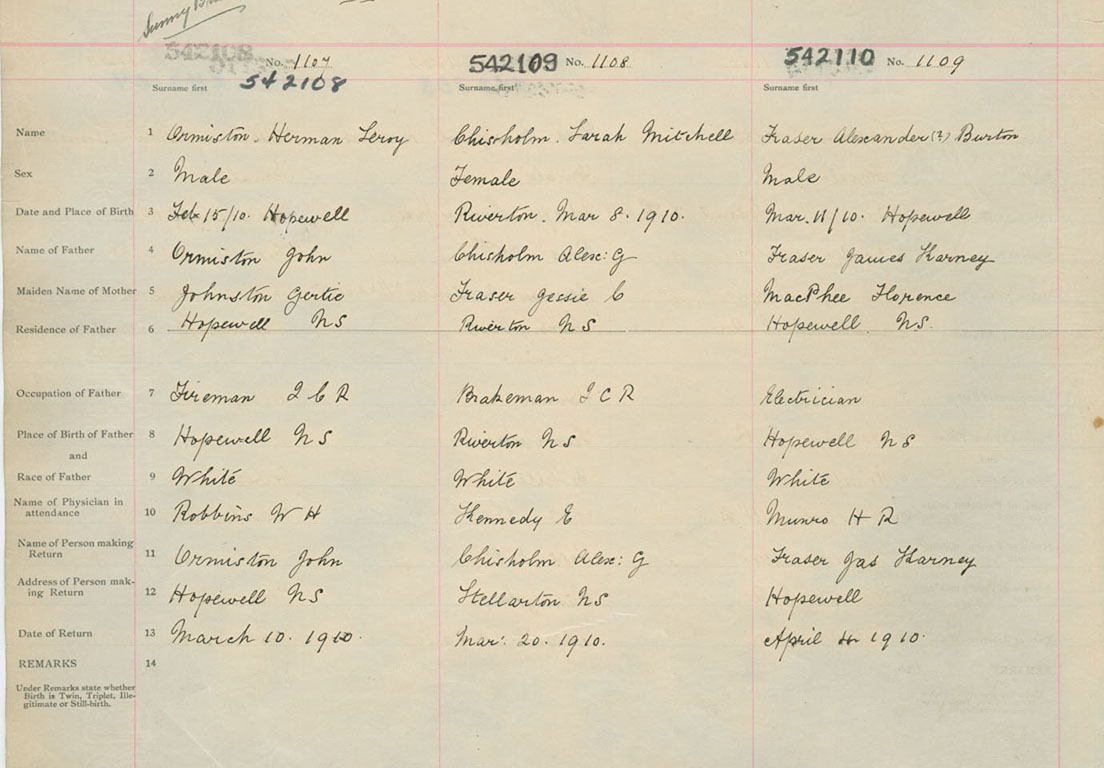 Sunny
542108 No. 1107 542109 No. 1108 542110 No. 1109
542108
Surname first Surname first Surname first
Name 1 Ormiston. Herman Leroy Chisholm. Sarah Mitchell Fraser Alexander (?) Burton
Sex 2 Male Female Male
Date and Place of Birth 3 Feb 15/10. Hopewell Riverton. Mar 8. 1910. Mar. 11/10. Hopewell
Name of Father 4 Ormiston John Chisholm Alex: G Fraser James Harney
Maiden Name of Mother 5 Johnston Gertie Fraser Jessie C MacPhee Florence
Residence of Father 6 Hopewell NS Riverton NS Hopewell NS.
Occupation of Father 7 Fireman I C R Brakeman I C R Electrician
Place of Birth of Father 8 Hopewell NS Riverton NS Hopewell NS
and
Race of Father 9 White White White
Name of Physician in
attendance 10 Robbins W H Kennedy E Munro H R
Name of Person making
Return 11 Ormiston John Chisholm Alex: G Fraser Jas Harney
Address of Person mak-
ing Return 12 Hopewell NS Stellarton NS Hopewell
Date of Return 13 March 10. 1910. Mar: 20. 1910. April 1910.
REMARKS 14
Under Remarks state whether
Birth is Twin, Triplet, Ille-
gitimate or Still-birth.